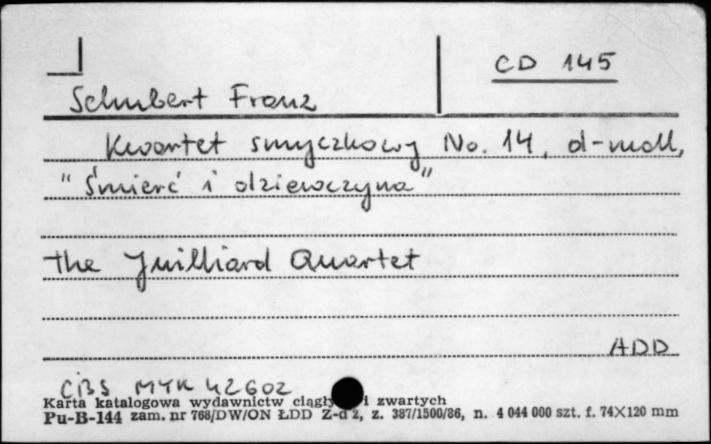 CD 145
Schubert Franz
Kwartet smyczkowy No. 14, d-moll,
"Śmierć i dziewczyna"
the Juilliard Quartet
ADD
CBS MYK 42602
Karta katalogowa wydawnictw ciągły i zwartych
Pu-B-144 zam. nr 768/DW/ON ŁDD Z-d 2, z. 387/1500/86, n. 4 044 000 szt. f. 74×120 mm